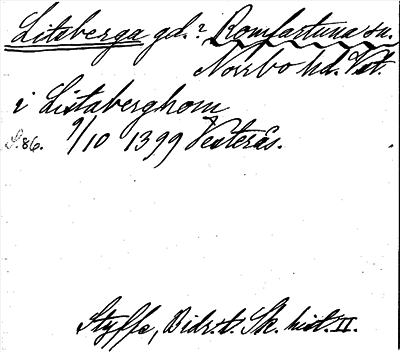 Litsberga gd.? Romfartuna sn.
Norrbo hd. Vst.
i Listaberghom
S. 86. 9/10 1399 Vesterås.
Styffe, Bidr. t. Sk. hist. II.